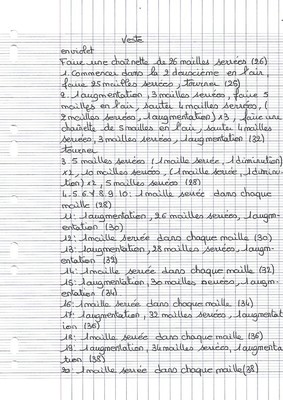 Veste
en violet
Faire une chaînette de 26 mailles serrées (26)
1. Commencer dans la 2 deuxième en l'air,
faire 25 mailles serrées, tourner (25)
2. 1 augmentation, 3 mailles serrées, faire 5
mailles en l'air, sauter 4 mailles serrées, (
2 mailles serrées, 1 augmentation) x3, faire une
chaînette de 5 mailles en l'air, sauter 4 mailles
serrées, 3 mailles serrées, 1 augmentation (32)
tourner
3. 5 mailles serrées (1 maille serrée, 1 diminution)
x2, 10 mailles serrées, (1 maille serrée, 1 diminu-
tion) x2, 5 mailles serrées (28)
4. 5. 6. 7. 8. 9. 10: 1 maille serrée dans chaque
maille (28)
11: 1 augmentation, 26 mailles serrées, 1 augm-
entation (30)
12: 1 maille serrée dans chaque maille (30)
13: 1 augmentation, 28 mailles serrées, 1 augm-
entation (32)
14: 1 maille serrée dans chaque maille (32)
15: 1 augmentation, 30 mailles serrées, 1 augm-
entation (34)
16: 1 maille serrée dans chaque maille (34)
17: 1 augmentation, 32 mailles serrées, 1 augmentat
ion (36)
18: 1 maille serrée dans chaque maille (36)
19: 1 augmentation, 34 mailles serrées, 1 augmenta
tion (38)
20: 1 maille serrée dans chaque maille (38)